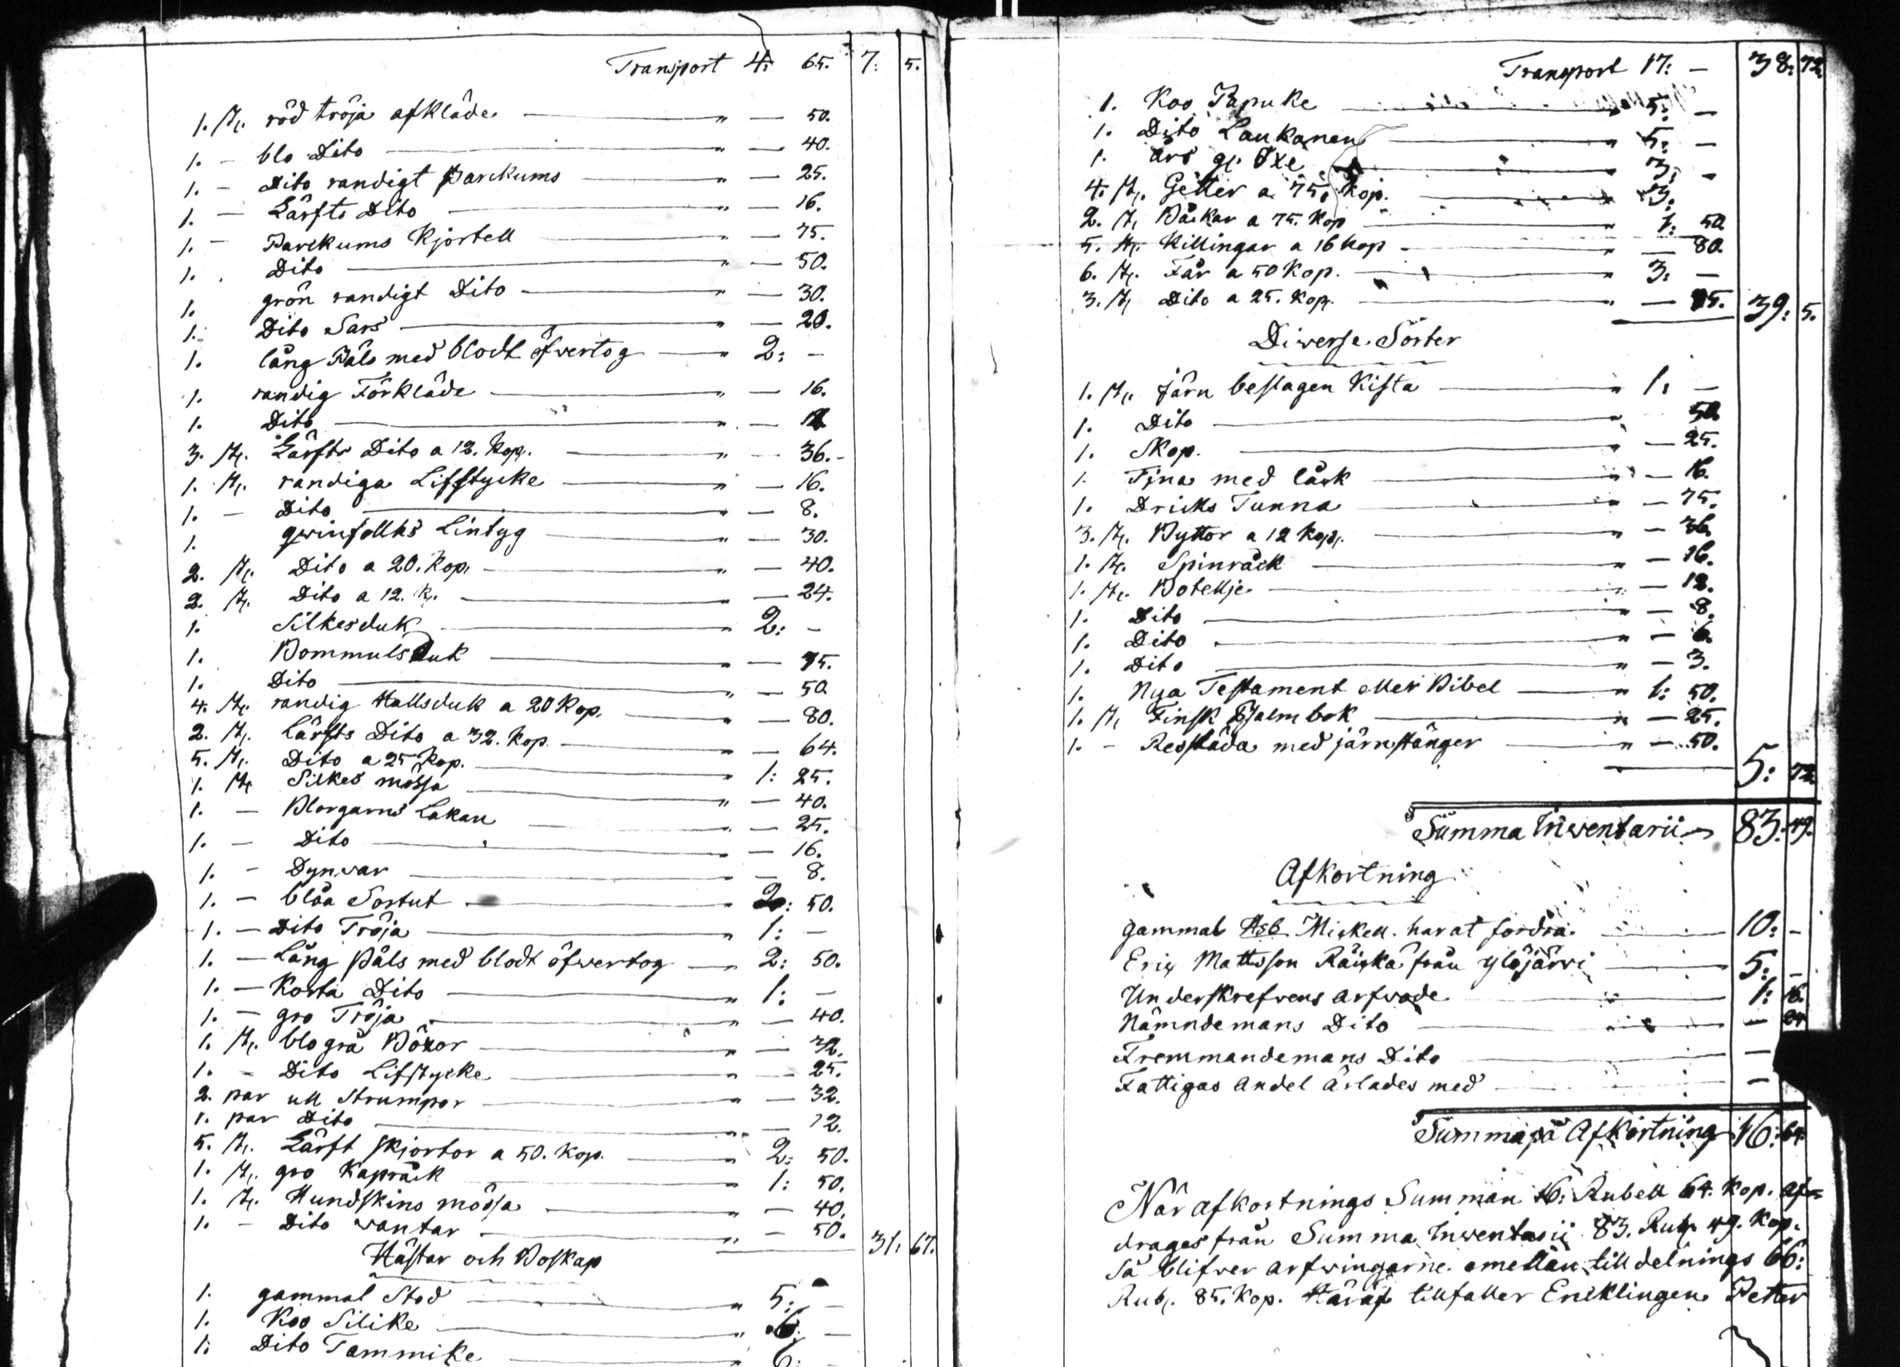 Transport 4: 65. 7: 5.
1. st. röd tröja af kläde " — 50.
1. — blo Dito " — 40.
1. — Dito randigt Parckums " — 25.
1. — Lärfts Dito " — 16.
1. — Parckums Kjortell " — 75.
1. Dito " — 50.
1. grön randigt Dito " — 30.
1. Dito Sars " — 20.
1. lång Päls med blodt öfvertog " 2: —
1. randig Förkläde " — 16.
1. Dito " — 12.
3. st. Lärfts Dito a 12. kop. " — 36.
1. st. randiga Lifstycke " — 16.
1. — Dito " — 8.
1. qwinfolks Lintyg " — 30.
2. st. Dito a 20. kop. " — 40.
2. st. Dito a 12. k. " — 24.
1. Silkesduk " 2: —
1. Bommulsduk " — 75.
1. Dito " — 50
4. st. randig Hallsduk a 20 kop. " — 80.
2. st. Lärfts Dito a 32. kop. " — 64.
5. st. Dito a 25 kop. " 1: 25.
1. st. Silkes mössa " — 40.
1. — Blorgarns Lakan " — 25.
1. — Dito " — 16.
1. — Dynvar " — 8.
1. — blåa Sortut " 2: 50.
1. — Dito Tröja " 1: —
1. — Lång päls med blodt öfwertog " 2: 50.
1. — Korta Dito " 1: —
1. — gro Tröja " — 40.
1. st. blo grå Böxor " — 32.
1. — Dito Lifstycke " — 25.
2. par ull Strumpor " — 32.
1. par Dito " — 12.
5. st. Lärft skjortor a 50. kop. " 2: 50.
1. st. gro Kapråck " 1: 50.
1. st. Hundskins mössa " — 40.
1. — Dito vantar " — 50. 31: 67.
Hästar och Boskap
1. gammal Stod " 5: —
1. Koo Silike " 6: —
1. Dito Tammike 6: —
Transport 17: — 38: 72.
1. Koo Papuke " 5: —
1. Dito Laukanen " 5: —
1. års gl. Oxe " 3: —
4. st. Getter a 75. kop. " 3:
2. st. Båckar a 75. kop " 1: 50
5. st. Killingar a 16 kop " — 80.
6. st. Får a 50 kop. " 3: —
3. st. Dito a 25. kop. " — 75. 39: 5.
Diverse Sorter
1. st. järn beslagen Kista " 1: —
1. Dito " — 50.
1. Skop. " — 25.
1. Tina med låck " — 16.
1. Dricks Tunna " — 75.
3. st. Byttor a 12 kop. " — 36.
1. st. Spinråck " — 16.
1. st. Botellje " — 12.
1. Dito " — 8.
1. Dito " — 6.
1. Dito " — 3.
1. Nya Testament eller Bibel " 1: 50.
1. st. Finsk Psalmbok " — 25.
1. — Resslåda med järnstänger " — 50.
5: 72
Summa Inventarii 83: 49.
Afkortning
gammal Hsb. Mickell har at fordra 10: —
Eric Mattsson Räiskä från Ylöjärvi 5: —
Underskrefvens arfvode 1: 16.
Nämndemans Dito — 24
Fremmandemans Dito —
Fattigas andel ärlades med —
Summa på Afkortning 16: 64
När afkortnings Summan 16: Rubell 64. kop. af=
drages från Summa Inventarii 83. Rub. 49. kop.
så blifver arfvingarne emellan till delnings 66:
Rub. 85. kop. Häraf tillfaller Encklingen Petter